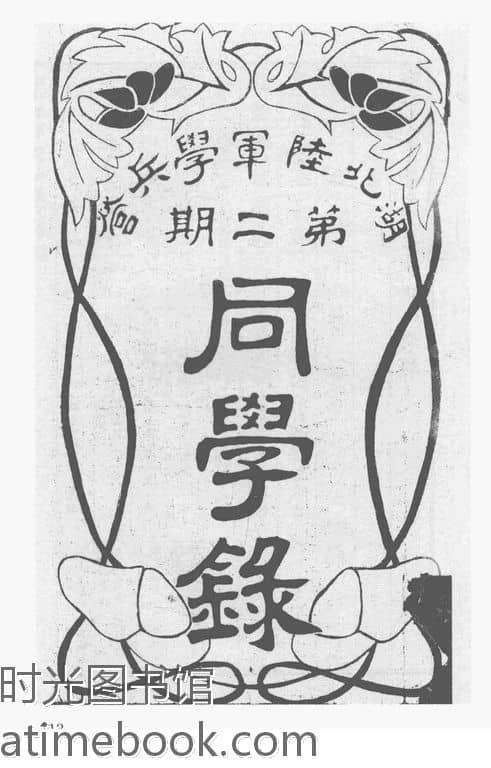 湖北陸軍學兵營
第二期
同學錄
时光图书馆
atimebook.com